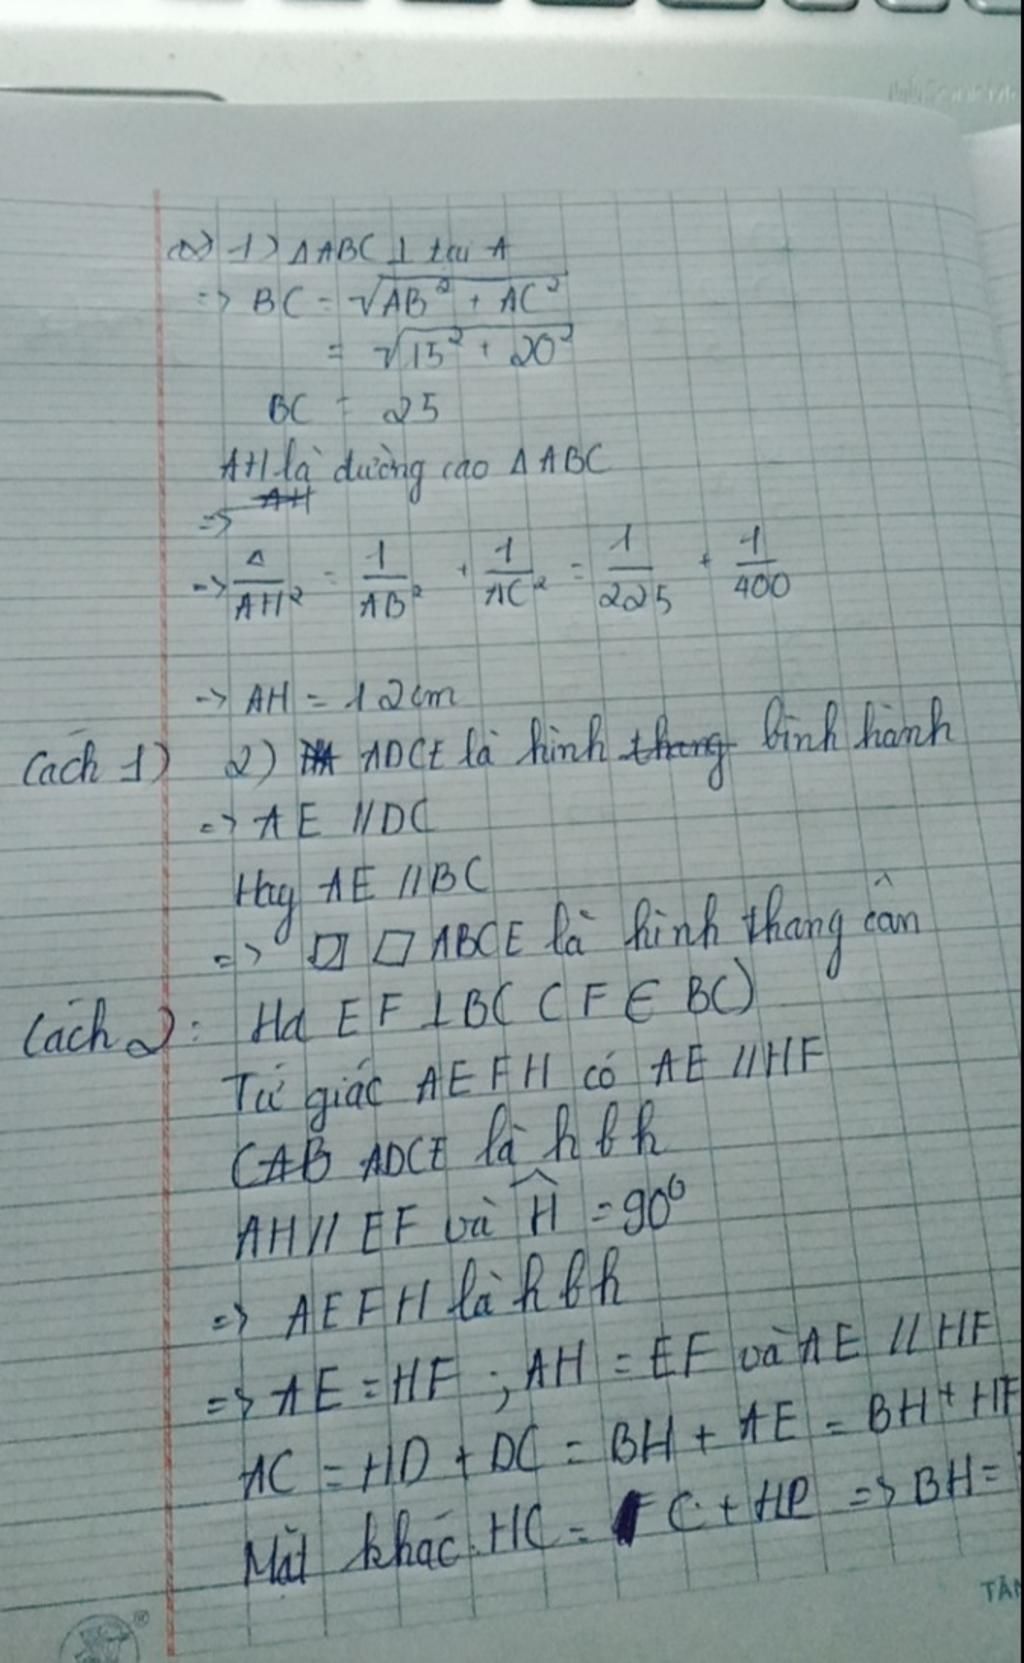 1) ΔABC ⊥ tại A
=> BC = √AB² + AC²
= √15² + 20²
BC = 25
AH là đường cao Δ ABC
=>
=> 1/AH² = 1/AB² + 1/AC² = 1/225 + 1/400
-> AH = 12cm
Cách 1) 2) ADCE là hình thang bình hành
=> AE // DC
Hay AE // BC
=> ABCE là hình thang cân
Cách 2: Hạ EF ⊥ BC ( F ∈ BC)
Tứ giác AEFH có AE // HF
CAB ADCE là hbh
AH // EF và Ĥ = 90⁰
=> AEFH là hbh
=> AE = HF ; AH = EF và AE // HF
AC = HD + DC = BH + AE = BH + HF
Mặt khác HC = FC + HP => BH =
TÂN